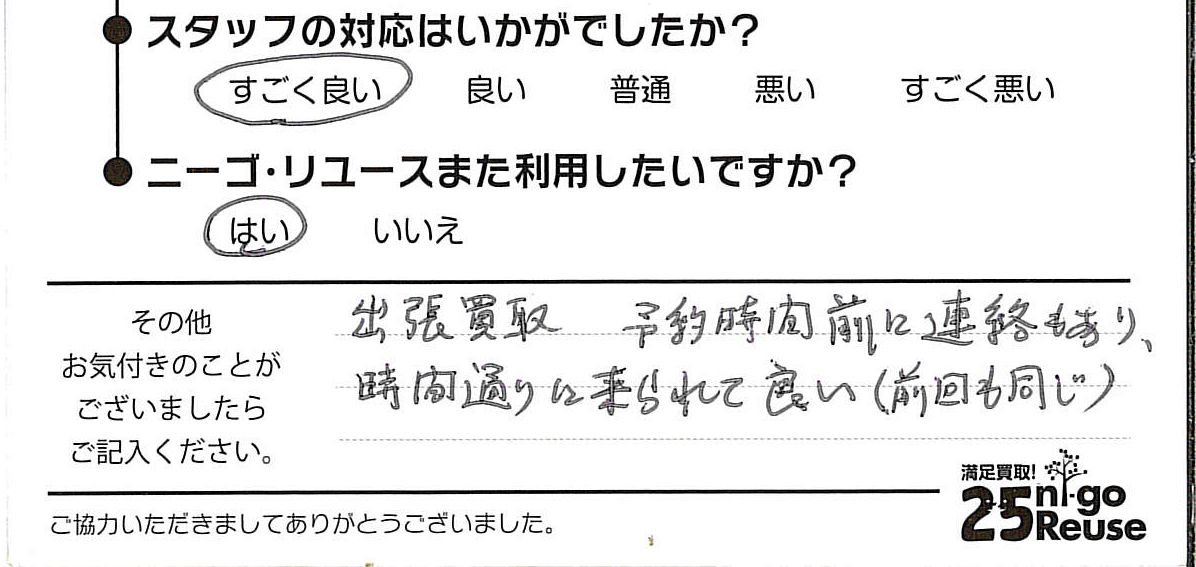 スタッフの対応はいかがでしたか？
すごく良い 良い 普通 悪い すごく悪い
ニーゴ・リユースまた利用したいですか？
はい いいえ
その他
お気付きのことが
ございましたら
ご記入ください。
出張買取 予約時間前に連絡もあり、
時間通りに来られて良い（前回も同じ）
満足買取!
25 ni-go
Reuse
ご協力いただきましてありがとうございました。